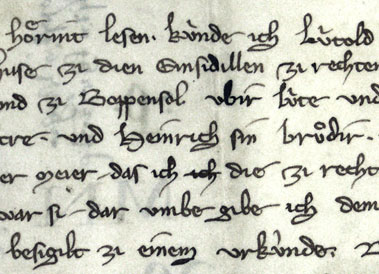 hoͤrint lesen. kuͥnde ich Luͥtold
huse zi dien Einsidillen zi rechten
und zi Boppensol ubir luͥte und
tre. und Heinrich sin bruͦdir.
er meier das ich ich die zi recht
war si dar umbe gibe ich dem
besigilt zi einem urkuͥnde.